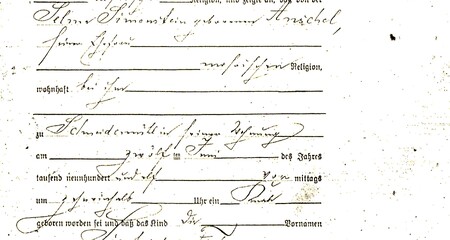 Religion, und zeigte an, daß von der
Selma Simonstein geborenen Anschel,
seiner Ehefrau
mosaischen Religion,
wohnhaft bei ihm
zu Schneidemühl in seiner Wohnung
am zwölften Juni des Jahres
tausend neunhundert und elf vor mittags
um zehneinhalb Uhr ein Knabe
geboren worden sei und daß das Kind die Vornamen